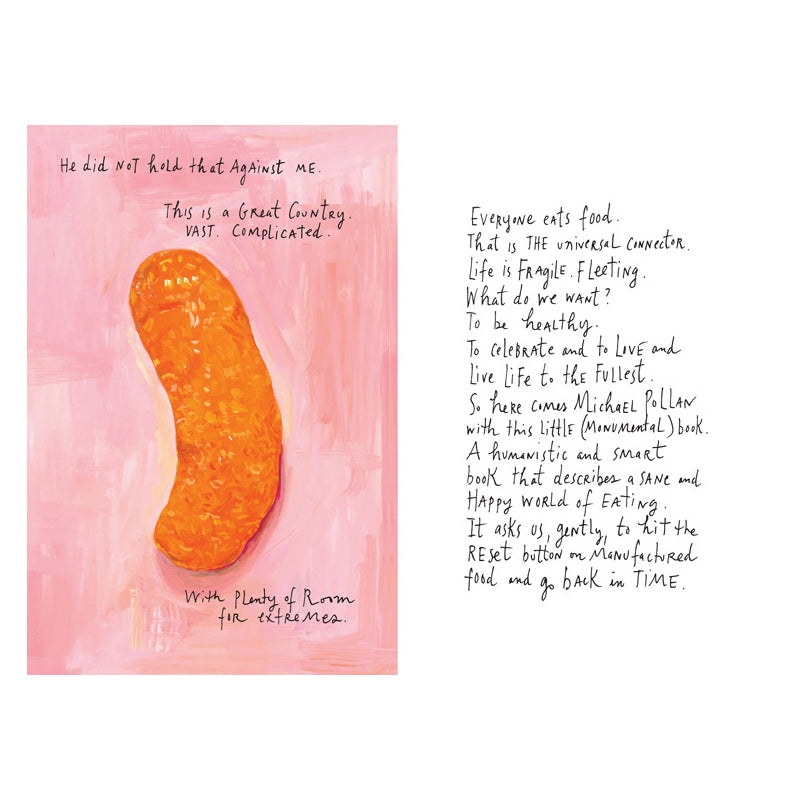 He did NOT hold that AgAinst ME.
This is a Great Country.
VAST. Complicated.
With Plenty of Room
for extremes.
Everyone eats food.
That is THE universal connector.
Life is FRAgile. Fleeting.
What do we WANT?
To be healthy.
To celebrate and to Love and
Live Life to the Fullest.
So here comes Michael Pollan
with this little (Monumental) book.
A humanistic and smart
book that describes a SANE and
HAPPY WORLD of EATing.
It asks us, gently, to hit the
RESet button on MANufactured
food and go back in TIME.